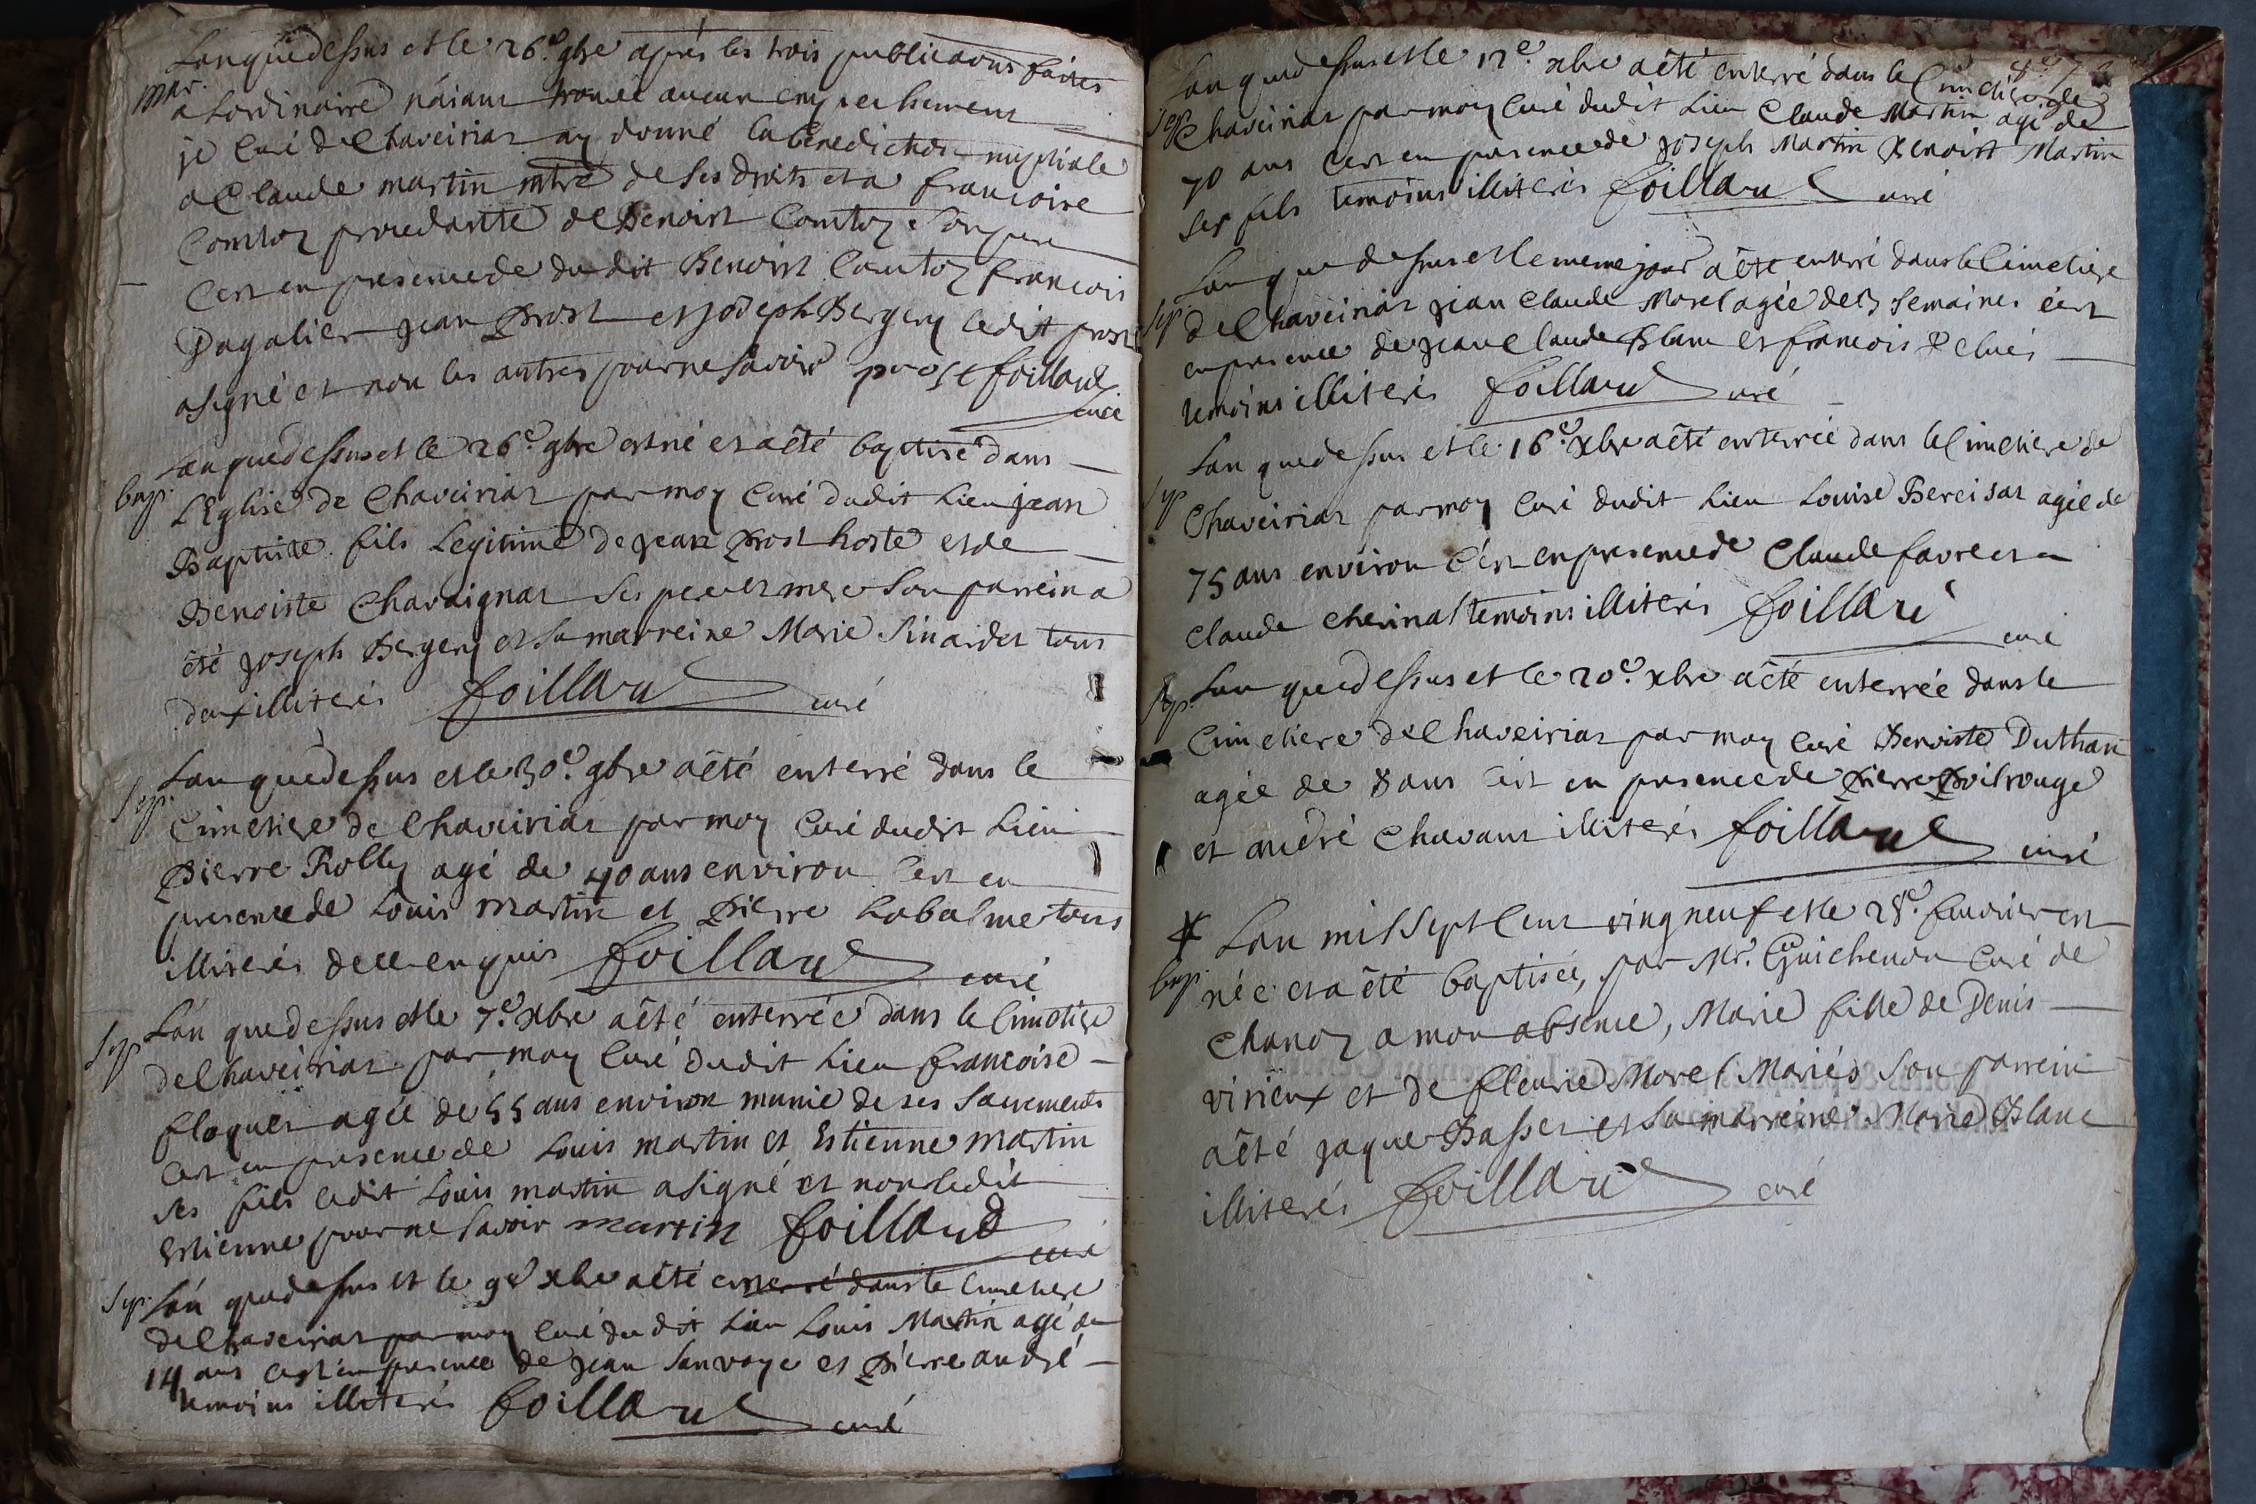 Lan que dessus et le 26.e 9bre aprés les trois publications faites
mar. a Lordinaire náiant trouvé aucun empechement
je Curé de Chaveiriat ay donné la bénédiction nuptiale
a Claude martin mtre de ses droits et a francoise
Comtoz procedante de Benoist Comtoz son pere
C'est en presence de du dit Benoist Comtoz francois
Dagalier jean Prost et joseph Bergery ledit prost
a signé et non les autres pour ne savoir prost foillard
curé
Lan que dessus et le 26.e 9bre est né et a êté baptisé dans
bap. L'Eglise de Chaveiriat par moy Curé dudit Lieu jean
Baptiste fils Legitime de jean Prost hoste et de
Benoiste Chavaignat ses pere et mere Son parrein a
été joseph Bergery et sa marreine Marie Sinardet tous
deux illiterés foillard curé
Lan que dessus et le 30.e 9bre a êté enterré dans le
sep. Cimetiere de Chaveiriat par moy Curé dudit Lieu
Pierre Rolly agé de 40 ans environ C'est en
presence de Louis martin et Pierre Labalme tous
illiterés de ce enquis foillard curé
Lan que dessus et le 7.e Xbre a êté enterrée dans le Cimetiere
sep. de Chaveiriat par moy Curé dudit Lieu francoise
floquet agée de 55 ans environ munie de ses Sacrements
C'est en presence de Louis martin et Estienne martin
ses fils ledit Louis martin a signé et non ledit
Estienne pour ne savoir martin foillard
curé
sep. Lan que dessus et le 9e xbre a êté enterré dans le Cimetiere
de Chaveiriat par moy Curé du dit Lieu Louis Martin agé de
14 ans c'est en presence de jean Sanvoye et Pierre andré
temoins illiterés foillard curé
Lan que dessus et le 12.e xbre a êté enterré dans le Cimetiere de
sep. Chaveiriat par moy Curé dudit Lieu Claude Martin agé de
70 ans C'est en presence de joseph Martin Benoist Martin
ses fils temoins illiterés foillard curé
Lan que dessus et le meme jour a êté enterré dans le Cimetiere
sep. de Chaveiriat jean Claude Morel agée de 3 semaines c'est
en presence de jean Claude Blanc et francois
temoins illiterés foillard curé
Lan que dessus et le 16.e Xbre a êté enterrée dans le Cimetiere de
sep. Chaveiriat par moy Curé dudit Lieu Louise Bereisat agée de
75 ans environ C'est en presence de Claude favre et
Claude Cherinal temoins illiterés foillard
curé
sep. Lan que dessus et le 20.e xbre a êté enterrée dans le
Cimetiere de Chaveiriat par moy Curé Benoiste Duthan
agée de 8 ans C'est en presence de Pierre Poilrouge
et andré Chavant illiterés foillard curé
Lan mil Sept Cent vingneuf et le 28.e fevrier est
bap. née et a êté baptisée, par Mr. Guichenon Curé de
Chanoz a mon absence, Marie fille de Denis
virieux et de fleurie Morel Mariés Son parrein
a êté jaque Basset et sa marreine Marie Blanc
illiterés foillard curé